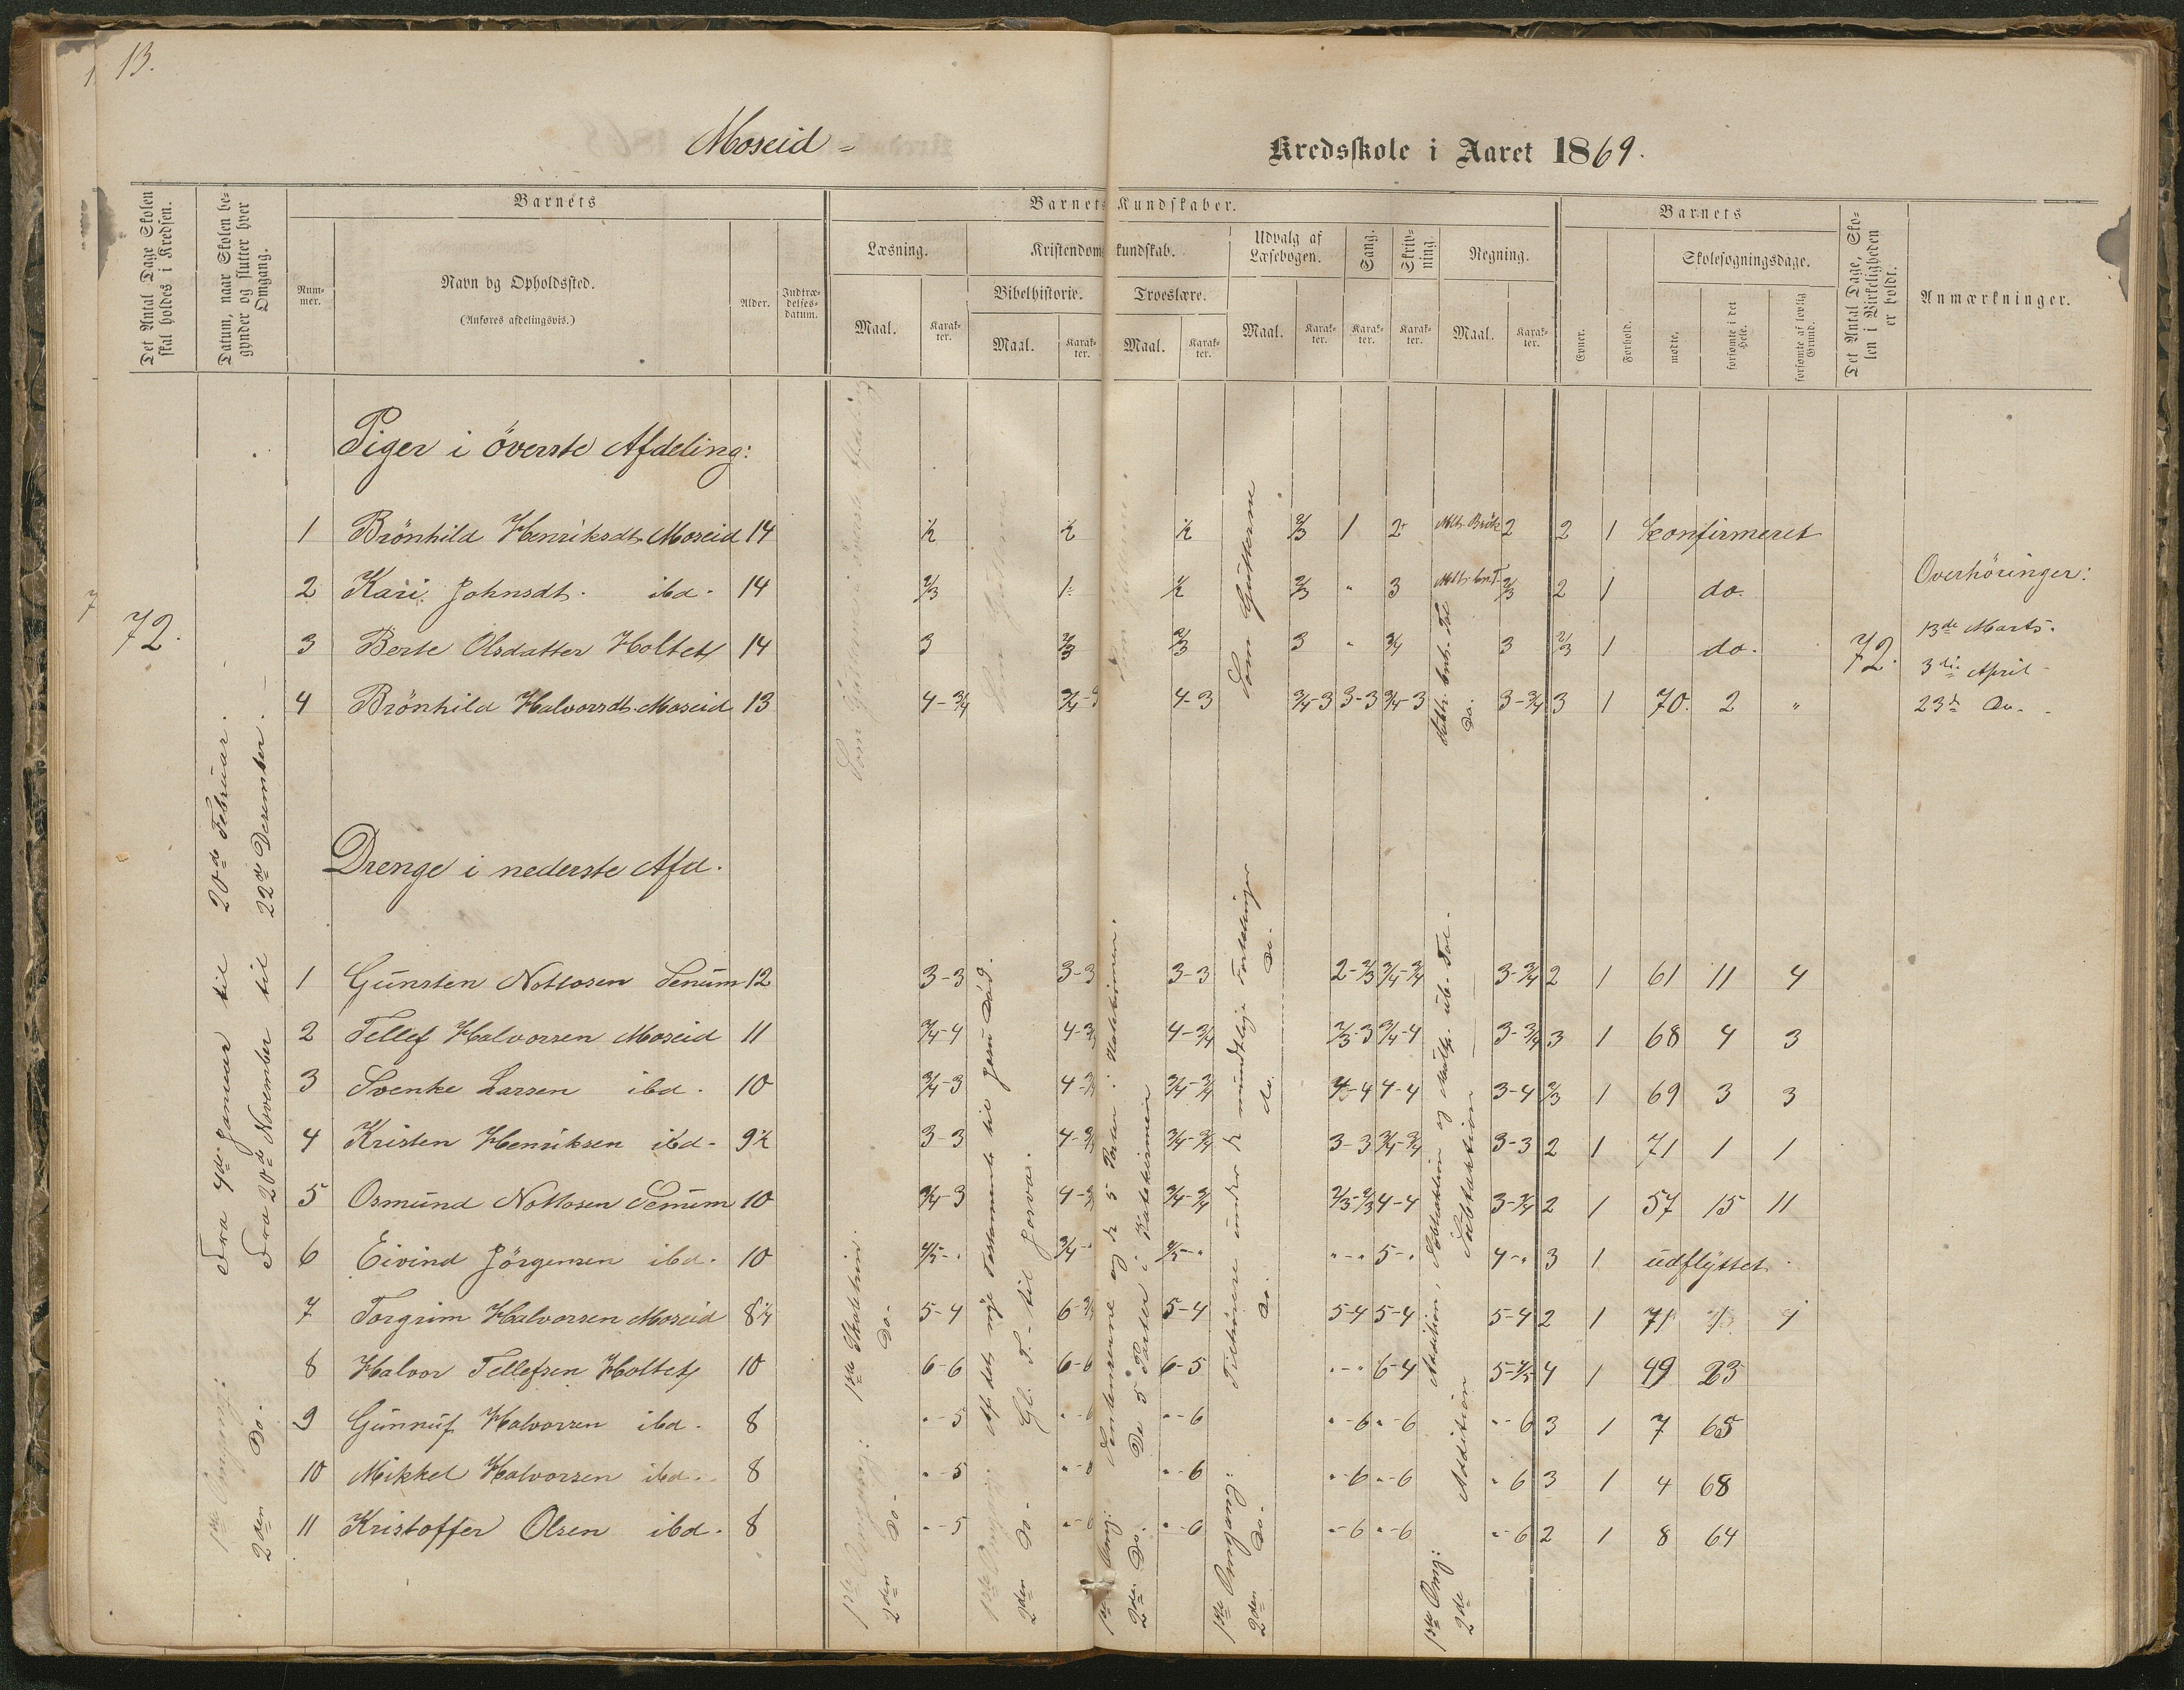 13.
Moseid -
Kredsskole i Aaret 1869.
Det Antal Dage Skolen skal holdes i Kredsen.
Datum, naar Skolen begynder og slutter hver Omgang.
Barnets
Nummer.
Navn og Opholdssted.
(Anføres afdelingsvis.)
Alder.
Indtrædelsesdatum.
Barnets Kundskaber.
Læsning.
Maal.
Karakter.
Kristendomskundskab.
Bibelhistorie.
Maal.
Karakter.
Troeslære.
Maal.
Karakter.
Udvalg af Læsebogen.
Maal.
Karakter.
Sang.
Karakter.
Skrivning.
Karakter.
Regning.
Maal.
Karakter.
Barnets
Evner.
Forhold.
Skolesøgningsdage.
mødte.
forsømte i det Hele.
forsømte af lovlig Grund.
Det Antal Dage, Skolen i Virkeligheden er holdt.
Anmærkninger.
72.
Fra 7de Januar til 20de Februar.
Fra 20de November til 22de Desember.
1ste Omgang:
2den Do.
Piger i överste Afdeling:
1 Brönhild Henriksdt. Moseid 14 ½ ½ ½ 2/3 1 2+ 2 2 1 Konfirmeret
2 Kari Johnsdt. ibd. 14 2/3 ½ 2/3 " 3 2/3 2 1 do.
3 Berte Olsdatter Holtet 14 3 2/3 2/3 3 " 3/4 3 2/3 1 do.
4 Brönhild Halvorsdt. Moseid 13 4-3/4 4-3 3/4-3 3-3 3/4-3 3-3/4 3 1 70. 2 "
Som Gutterne
72.
Overhöringer:
13de Marts.
3die April
23de Do.
Drenge i nederste Afd.
1 Gunsten Notlosen Senum 12 3-3 3-3 3-3 2-2/3 3/4-3/4 3-3/4 2 1 61 11 4
2 Tellef Halvorsen Moseid 11 3/4-4 4-3/4 2/3-3 3/4-4 3-3/4 3 1 68 4 3
3 Svenke Larsen ibd. 10 3/4-3 3/4-3/4 4-4 4-4 3-4 2/3 1 69 3 3
4 Kristen Henriksen ibd. 9½ 3-3 3/4-3/4 3-3 3/4-3/4 3-3 2 1 71 1 1
5 Osmund Notlosen Senum 10 3/4-3 3/4-3/4 2/3-2/3 4-4 3-3/4 2 1 57 15 11
6 Eivind Jörgensen ibd. 10 4/5-" 4/5-" "-" 5-" 4-" 3 1 udflyttet.
7 Torgrim Halvorsen Moseid 8½ 5-4 5-4 5-4 5-4 5-4 2 1 71
8 Halvor Tellefsen Holtet 10 6-6 6-6 6-5 "-" 6-4 5-4/5 4 1 49 23
9 Gunnuf Halvorsen ibd. 8 "-5 "-6 "-6 "-6 "-6 "-6 3 1 7 65
10 Mikkel Halvorsen ibd. 8 "-5 "-6 "-6 "-6 "-6 3 1 4 68
11 Kristoffer Olsen ibd. 8 "-5 "-6 "-6 "-6 "-6 "-6 2 1 8 64
1ste Omgang:
2den Do.
Af det nye Testamente til Jesu Daab.
Gl. T. til
De 5 Parter i Katekismen
1ste Omgang:
2den Do.
1ste Omg: Addition, Subtraktion og Mult.
2de Addition Subtraktion